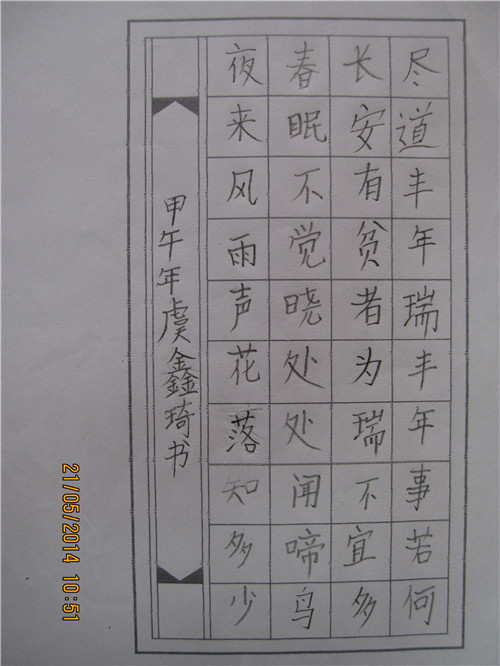 尽道丰年瑞丰年事若何
长安有贫者为瑞不宜多
春眠不觉晓处处闻啼鸟
夜来风雨声花落知多少
甲午年虞鑫琦书
21/05/2014 10:51